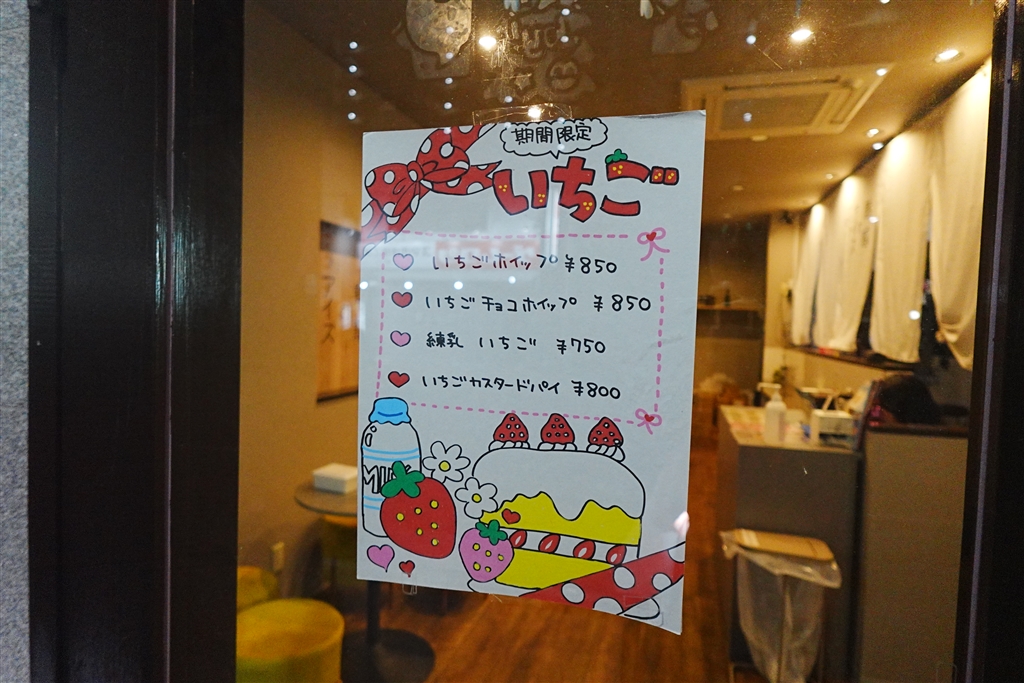 期間限定
いちご
いちごホイップ ¥850
いちごチョコホイップ ¥850
練乳 いちご ¥750
いちごカスタードパイ ¥800
MILK
アイス